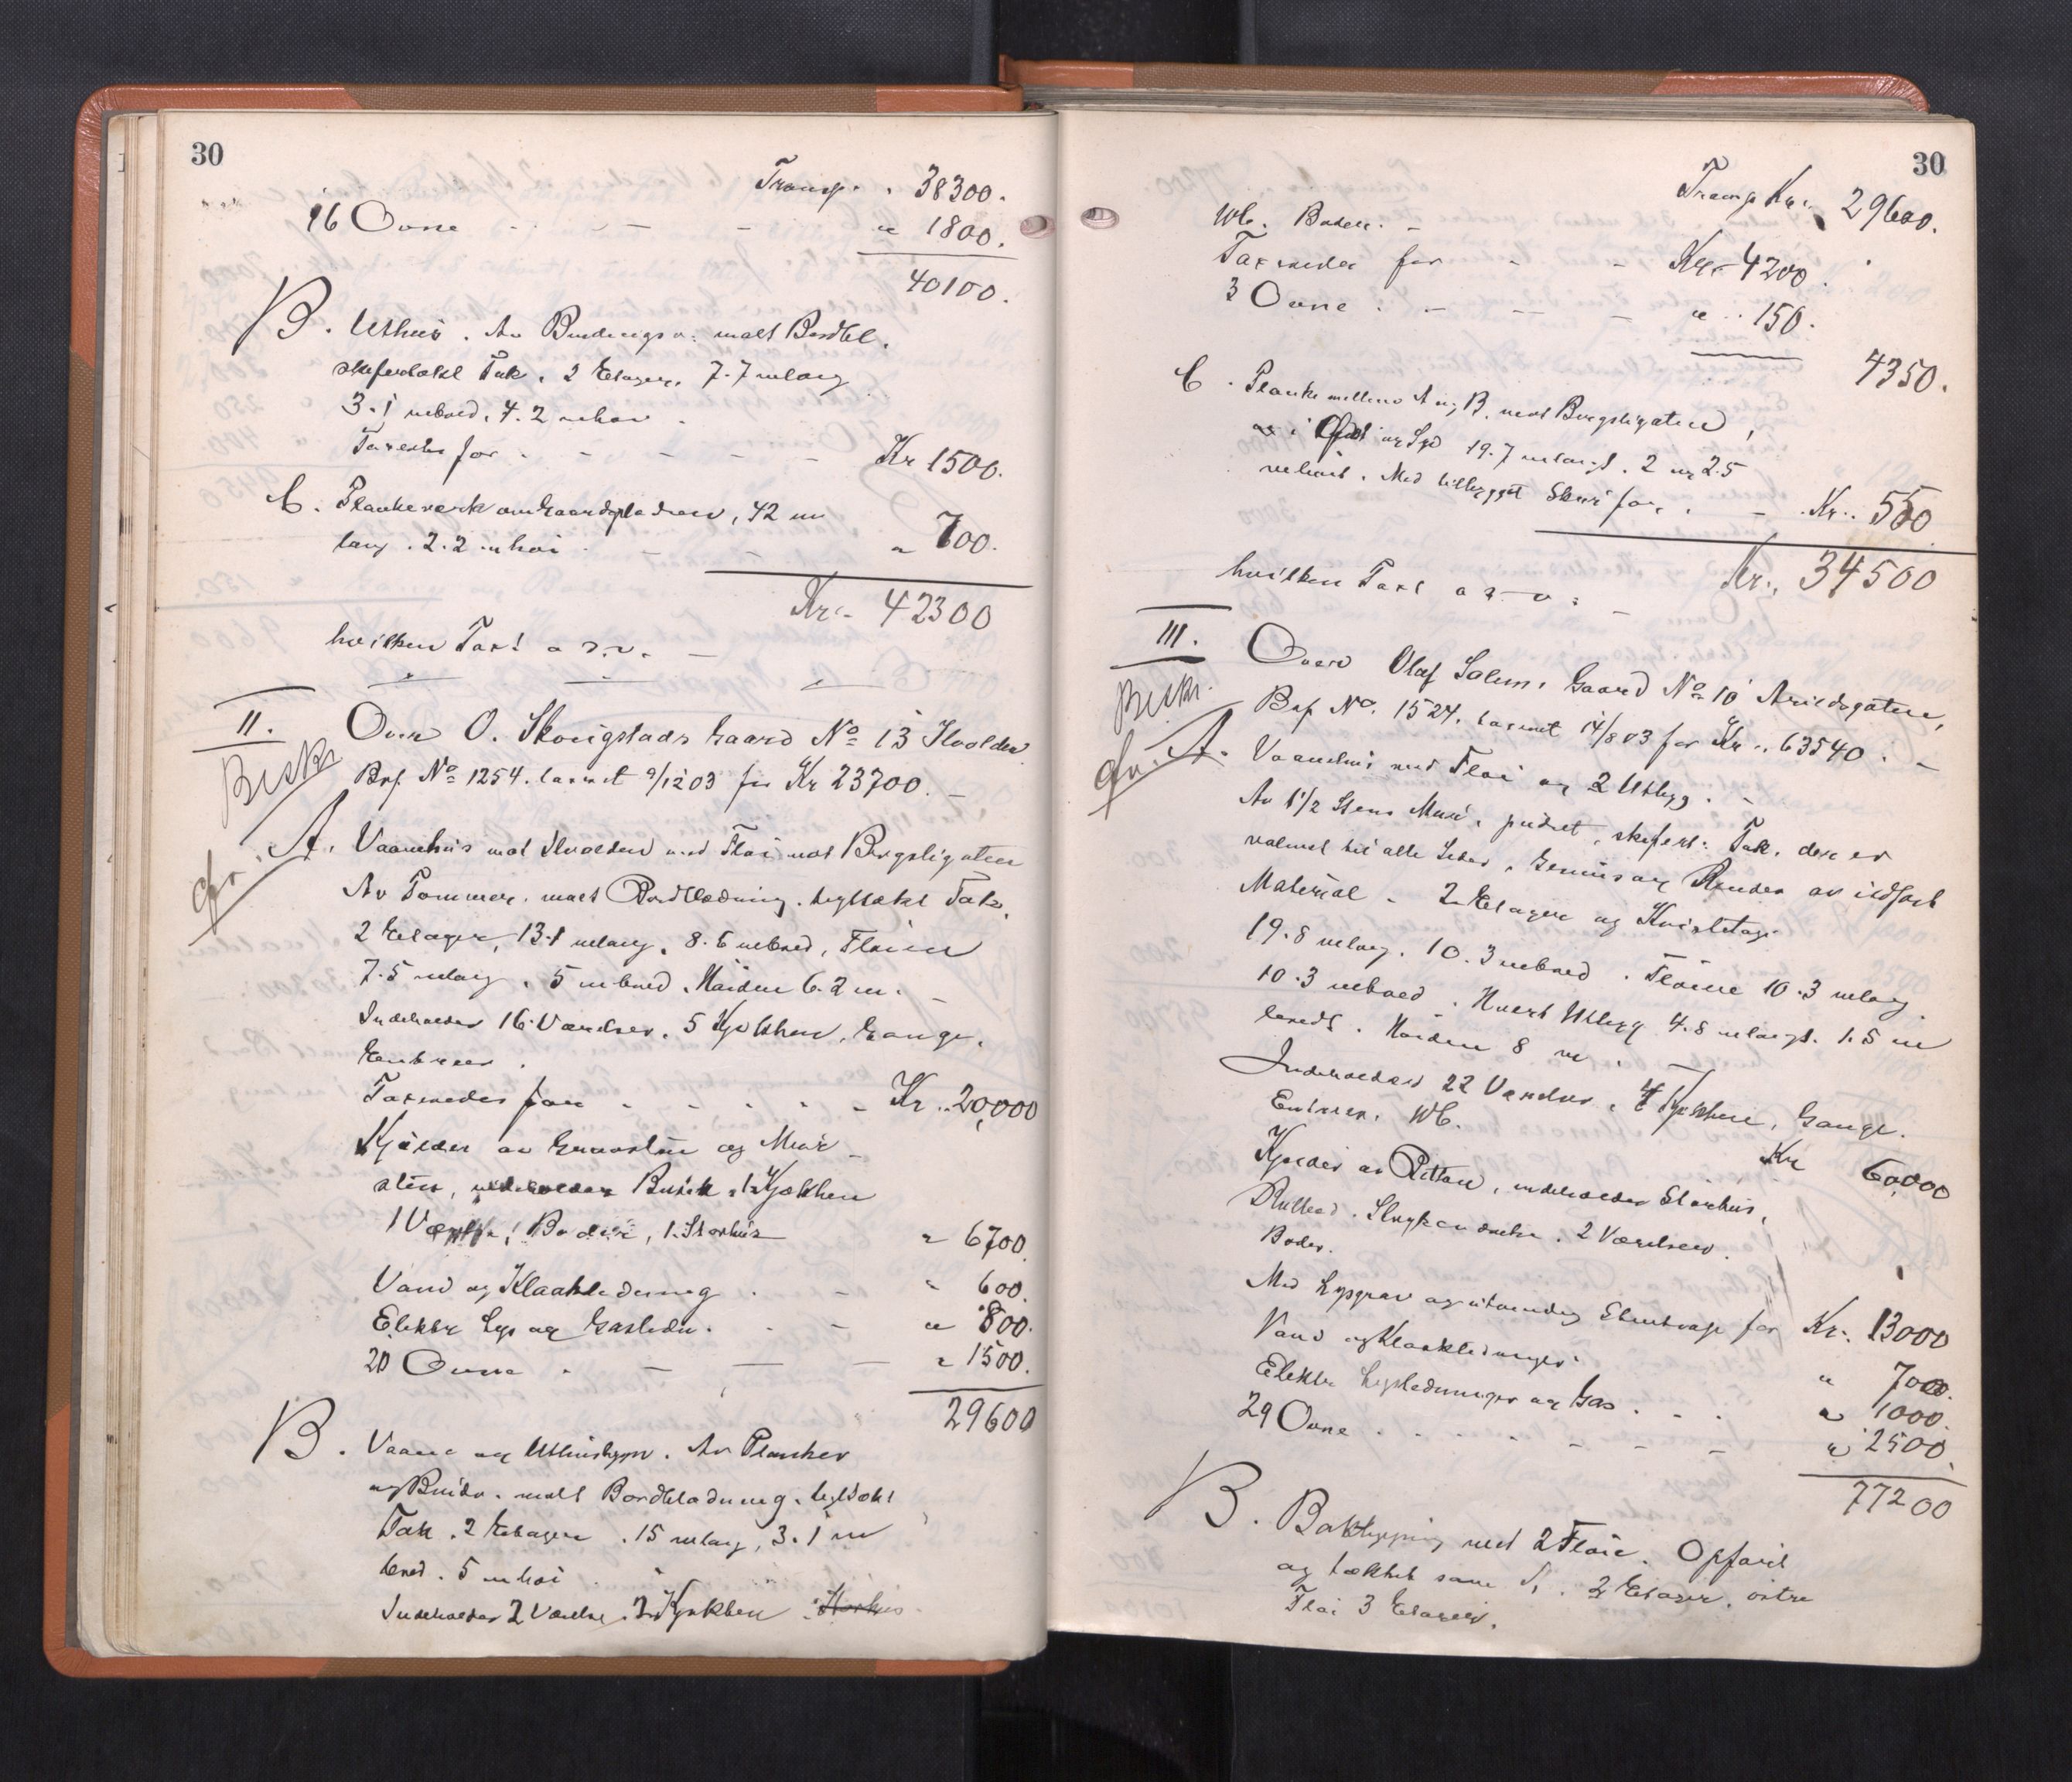 30
Transp. " 38300.
16 Ovne - - - " 1800.
40100.
B. Uthus. Av Bindingsv: malt Bordkl.
skifertækt Tak. 2 Etager. 7.7 m lang
3.1 m bred. 4.2 m høi.
Taxeres for - - - - - Kr 1500.
C. Plankeverk om Gaardspladsen, 42 m
lang. 2.2 m høi - - " 700.
Kr.- 42300
hvilken Taxt o. s. v. -
II. Over O. Skougstads Gaard No 13 Ilvolden
Beskr
Brf. No 1254. taxeret 9/12 03 for Kr 23700. -
A. Vaanehus mot Ilvolden med Fløi mot Bergsligaten
Av Tømmer. malt Bordklædning. tegltækt Tak.
2 Etager, 13.1 m lang. 8.6 m bred, Fløien
7.5 m lang. 5 m bred. Høiden 6.2 m. -
Indeholder 16 Værelser. 5 Kjøkken, Gange.
Entreer.
Taxeredes for - - - - - Kr. 20,000
Kjælder av Graasten og Mur-
sten, indeholder Butik. 1 Kjøkken
1 Værelse, Boder, 1 Storhus " 6700.
Vand og Kloakledning . - " 600.
Elektr Lys og Gasledn. - - " 800.
20 Ovne - - - - " 1500.
29600
B. Vaane og Uthusbygn. Av Planker
og Bindv. malt Bordklædning. tegltækt
Tak. 2 Etager. 15 m lang, 3.1 m
bred. 5 m høi.
Indeholder 2 Værelse. 2 Kjøkken
30
Transp Kr. 29600.
Wc. Boder. -
Taxeredes for - - Kr.- 4200.
3 Ovne - - - " 150.
4350.
C. Planke mellem A og B. mot Bergsligaten,
og Syd 19.7 m langt. 2 og 2.5
m høit. Med tilbygget Skur for. - Kr. 550.
Kr., 34500
hvilken Taxt o. s. v. -
III. Over Olaf Solem. Gaard No 10 Arildsgaten,
Beskr.
Brf No. 1524. taxeret 14/8 03 for Kr. 63540. -
A. Vaanehus med Fløi og 2 Utbyg. -
Av 1 1/2 Stens Mur. pudset, skifert: Tak. der er
valmet til alle Sider. Gesims og Render av ildfast
Material - 2 Etager og Kvistetage.
19.8 m lang. 10.3 m bred. Fløiene 10.3 m lang.
10.3 m bred. Hvert Utbygg 4.8 m langt. 1.5 m
bredt. Høiden 8 m. -
Indeholder 22 Værelser. Kjøkkene, Gange.
Entreer. Wc. Kr 60,000
Kjælder av Betton, indeholder Storhus,
Rullebod. Strykeværelse. 2 Værelser.
Boder.
Med Lysgrav og utvendig Stentrapp for Kr. 13000
Vand og Kloakledninger. " 700.
Elektr Lysledninger og Gas. - - " 1000.
29 Ovne . . . - - - " 2500.
77200
B. Bakbygning med 2 Fløie. Opført
og tækket som A. 2 Etager. østre
Fløi 3 Etager.